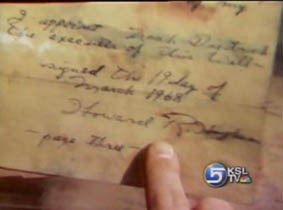 I appoint Noah Dietrich
the executer of this will—
signed the 19 day of
March 1968
Howard R.
- page three -
5 KSL
TV